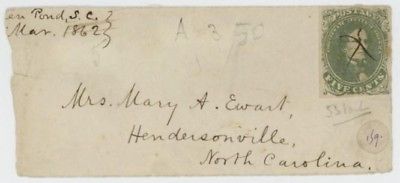 en Pond, S.C. }
Mar. 1862 }
A 3 50
POSTAGE
FIVE CENTS
Mrs. Mary A. Ewart,
Hendersonville,
North Carolina.
159.